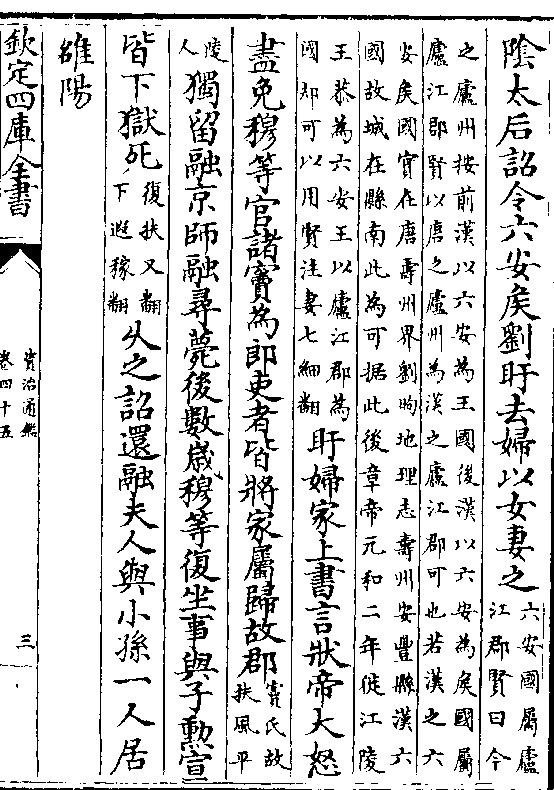 陰太后詔令六安侯劉盱去婦以女妻之六安國屬廬江郡賢曰今
之廬州按前漢以六安為王國後漢以六安為侯國屬
廬江郡賢以唐之廬州為漢之廬江郡可也若漢之六
安侯國實在唐壽州界劉昫地理志壽州安豐縣漢六
國故城在縣南此為可据此後章帝元和二年徙江陵
王恭為六安王以廬江郡為
國却可以用賢注妻七細翻盱婦家上書言狀帝大怒
盡免穆等官諸竇為郎吏者皆將家屬歸故郡竇氏故扶風平
陵人獨留融京師融尋薨後數歲穆等復坐事與子勲宣
皆下獄死復扶又翻下遐稼翻久之詔還融夫人與小孫一人居
雒陽
欽定四庫全書
資治通鑑
卷四十五
三